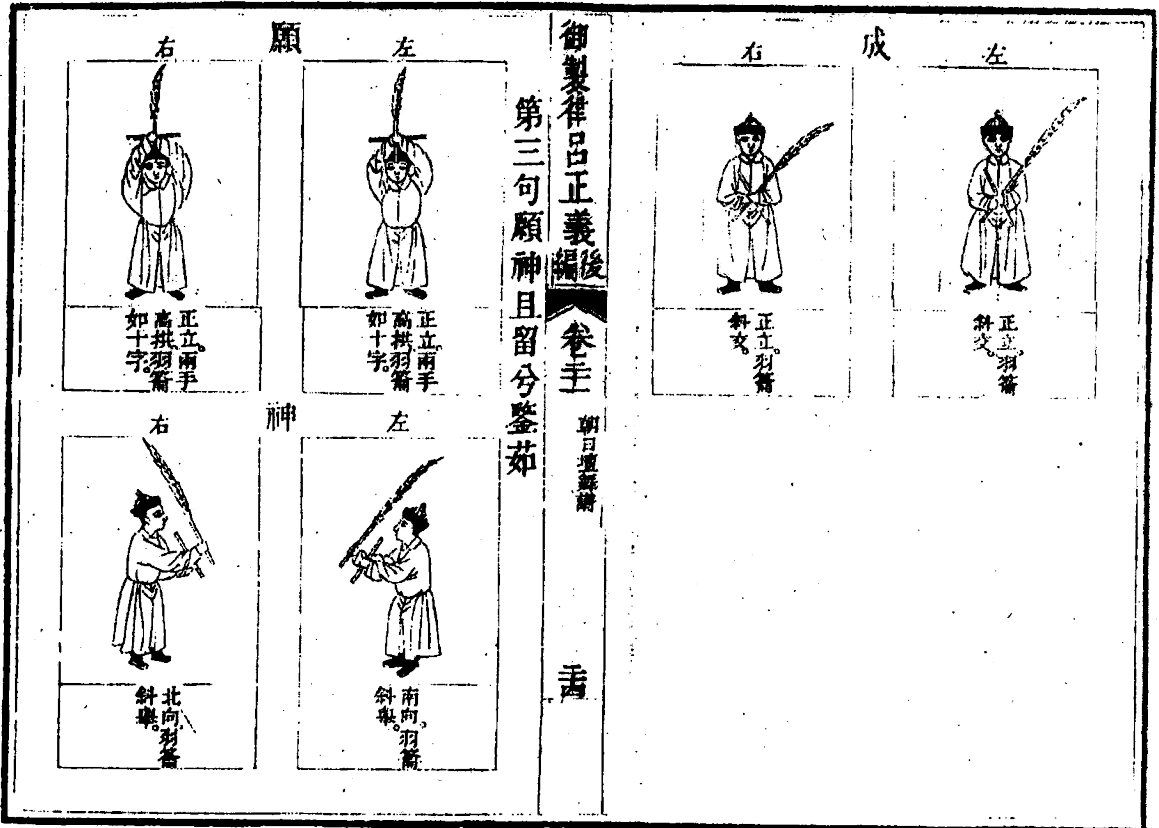 成
左
正立。羽籥
斜交。
右
正立。羽籥
斜交。
御製律呂正義後編
卷
朝日壇舞譜
第三句願神且留兮鑒茹
願
左
正立。兩手
高拱。羽籥
如十字。
右
正立。兩手
高拱。羽籥
如十字。
神
左
南向。羽籥
斜舉。
右
北向。羽籥
斜舉。